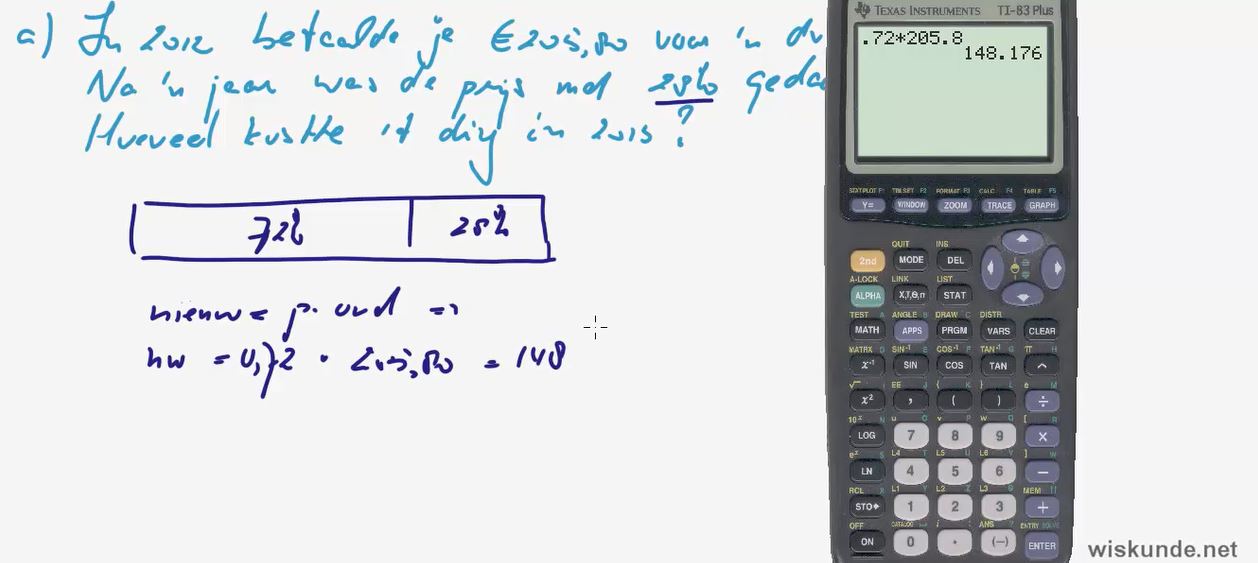 a) In 2012 betaalde je €205,80 voor 'n
Na 'n jaar was de prijs met 28%
Hoeveel kostte it ding in 2013?
72% 28%
nieuw = p. oud =>
nw = 0,72 · 205,80 = 148
TEXAS INSTRUMENTS TI-83 Plus
.72*205.8
148.176
STATPLOT F1 TBLSET F2 FORMAT F3 CALC F4 TABLE F5
Y= WINDOW ZOOM TRACE GRAPH
QUIT INS
2nd MODE DEL
A-LOCK LINK LIST
ALPHA X,T,Θ,n STAT
TEST A ANGLE B DRAW C DISTR
MATH APPS PRGM VARS CLEAR
MATRX D SIN⁻¹ E COS⁻¹ F TAN⁻¹ G π H
x⁻¹ SIN COS TAN ^
√ I EE J { K } L e M
x² , ( ) ÷
10ˣ N u O v P w Q [ R
LOG 7 8 9 ×
eˣ S L4 T L5 U L6 V ] W
LN 4 5 6 −
RCL X L1 Y L2 Z L3 θ MEM "
STO▸ 1 2 3 +
OFF CATALOG i : ANS ? ENTRY SOLVE
ON 0 . (−) ENTER
wiskunde.net